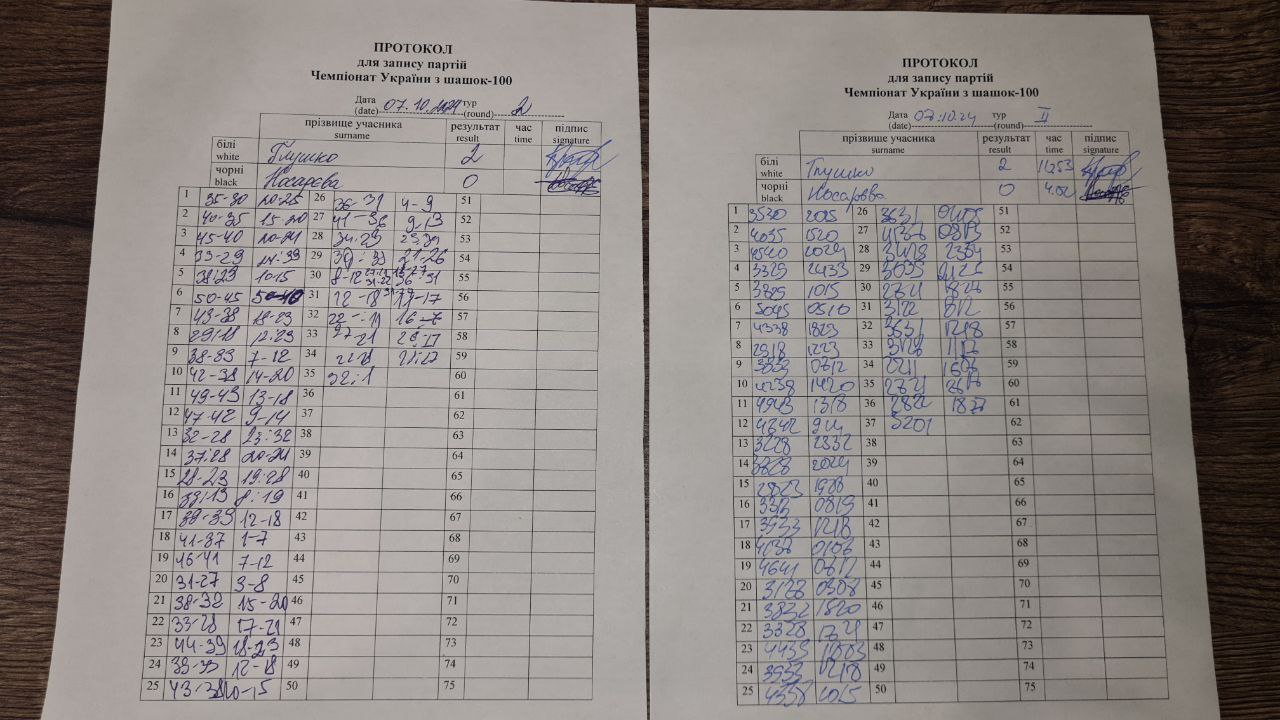 ПРОТОКОЛ
для запису партій
Чемпіонат України з шашок-100
Дата (date) 07.10.2024 тур (round) 2
прізвище учасника surname результат result час time підпис signature
білі white Глушко 2
чорні black Носарєва 0
1 35-30 20-25 26 36-31 4-9 51
2 40-35 15-20 27 41-36 9-13 52
3 45-40 20-24 28 34-29 23:34 53
4 33-29 24:33 29 39:33 21-26 54
5 38:29 10-15 30 55
6 50-45 31 12-17 56
7 43-38 18-23 32 57
8 29:18 12:23 33 27-21 26:17 58
9 38-33 7-12 34 59
10 42-38 14-20 35 32:1 60
11 49-43 13-18 36 61
12 47-42 9-14 37 62
13 32-28 23:32 38 63
14 37:28 20-24 39 64
15 28-23 19:28 40 65
16 33:13 8:19 41 66
17 39-33 12-18 42 67
18 41-37 1-7 43 68
19 46-41 7-12 44 69
20 31-27 3-8 45 70
21 38-32 15-20 46 71
22 33-28 17-21 47 72
23 44-39 18-23 48 73
24 39-33 12-18 49 74
25 43-38 20-15 50 75
ПРОТОКОЛ
для запису партій
Чемпіонат України з шашок-100
Дата (date) 07.10.24 тур (round) II
прізвище учасника surname результат result час time підпис signature
білі white Глушко 2
чорні black Носарєва 0
1 3530 2025 26 3631 0409 51
2 4035 1520 27 4136 0813 52
3 4540 2024 28 53
4 3329 2433 29 2126 54
5 3829 1015 30 2721 55
6 5045 0510 31 0712 56
7 4338 1823 32 3631 1218 57
8 2918 1223 33 58
9 3833 0712 34 59
10 4238 1420 35 2721 2617 60
11 4943 1318 36 2822 1827 61
12 4742 914 37 3201 62
13 3228 2332 38 63
14 3728 2024 39 64
15 2823 1928 40 65
16 3313 0819 41 66
17 3933 1218 42 67
18 4137 0106 43 68
19 4641 0712 44 69
20 3127 0308 45 70
21 3832 1520 46 71
22 3328 1721 47 72
23 4439 48 73
24 3933 1218 49 74
25 4338 2015 50 75